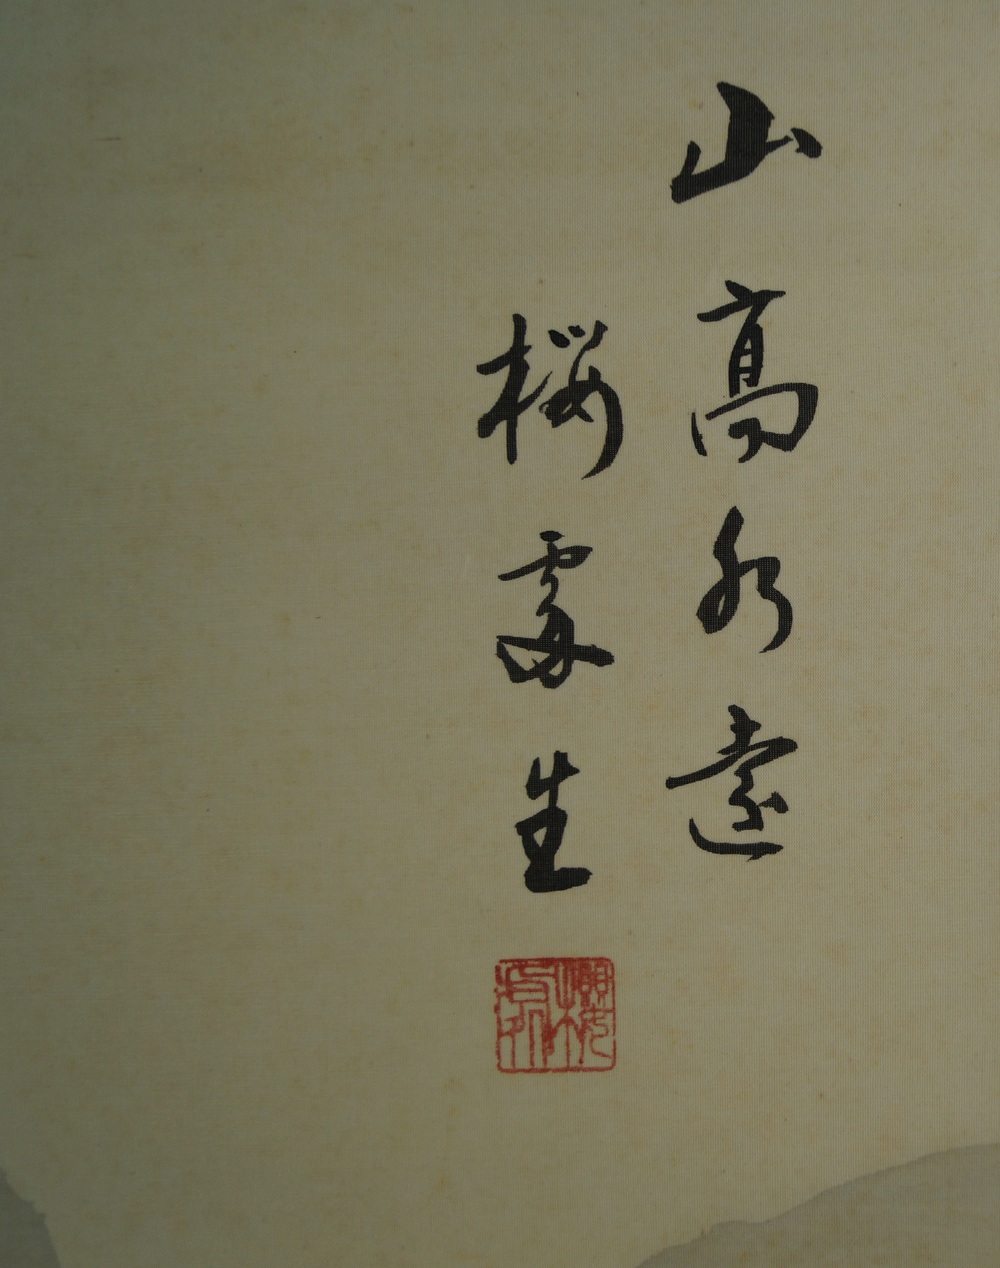 山高水遠
桜處生